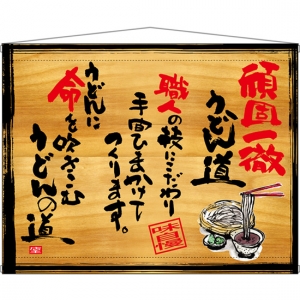 頑固一徹
うどん道
職人の技にこだわり
手間ひまかけて
つくります。
うどんに
命を吹きこむ
うどんの道
味自慢